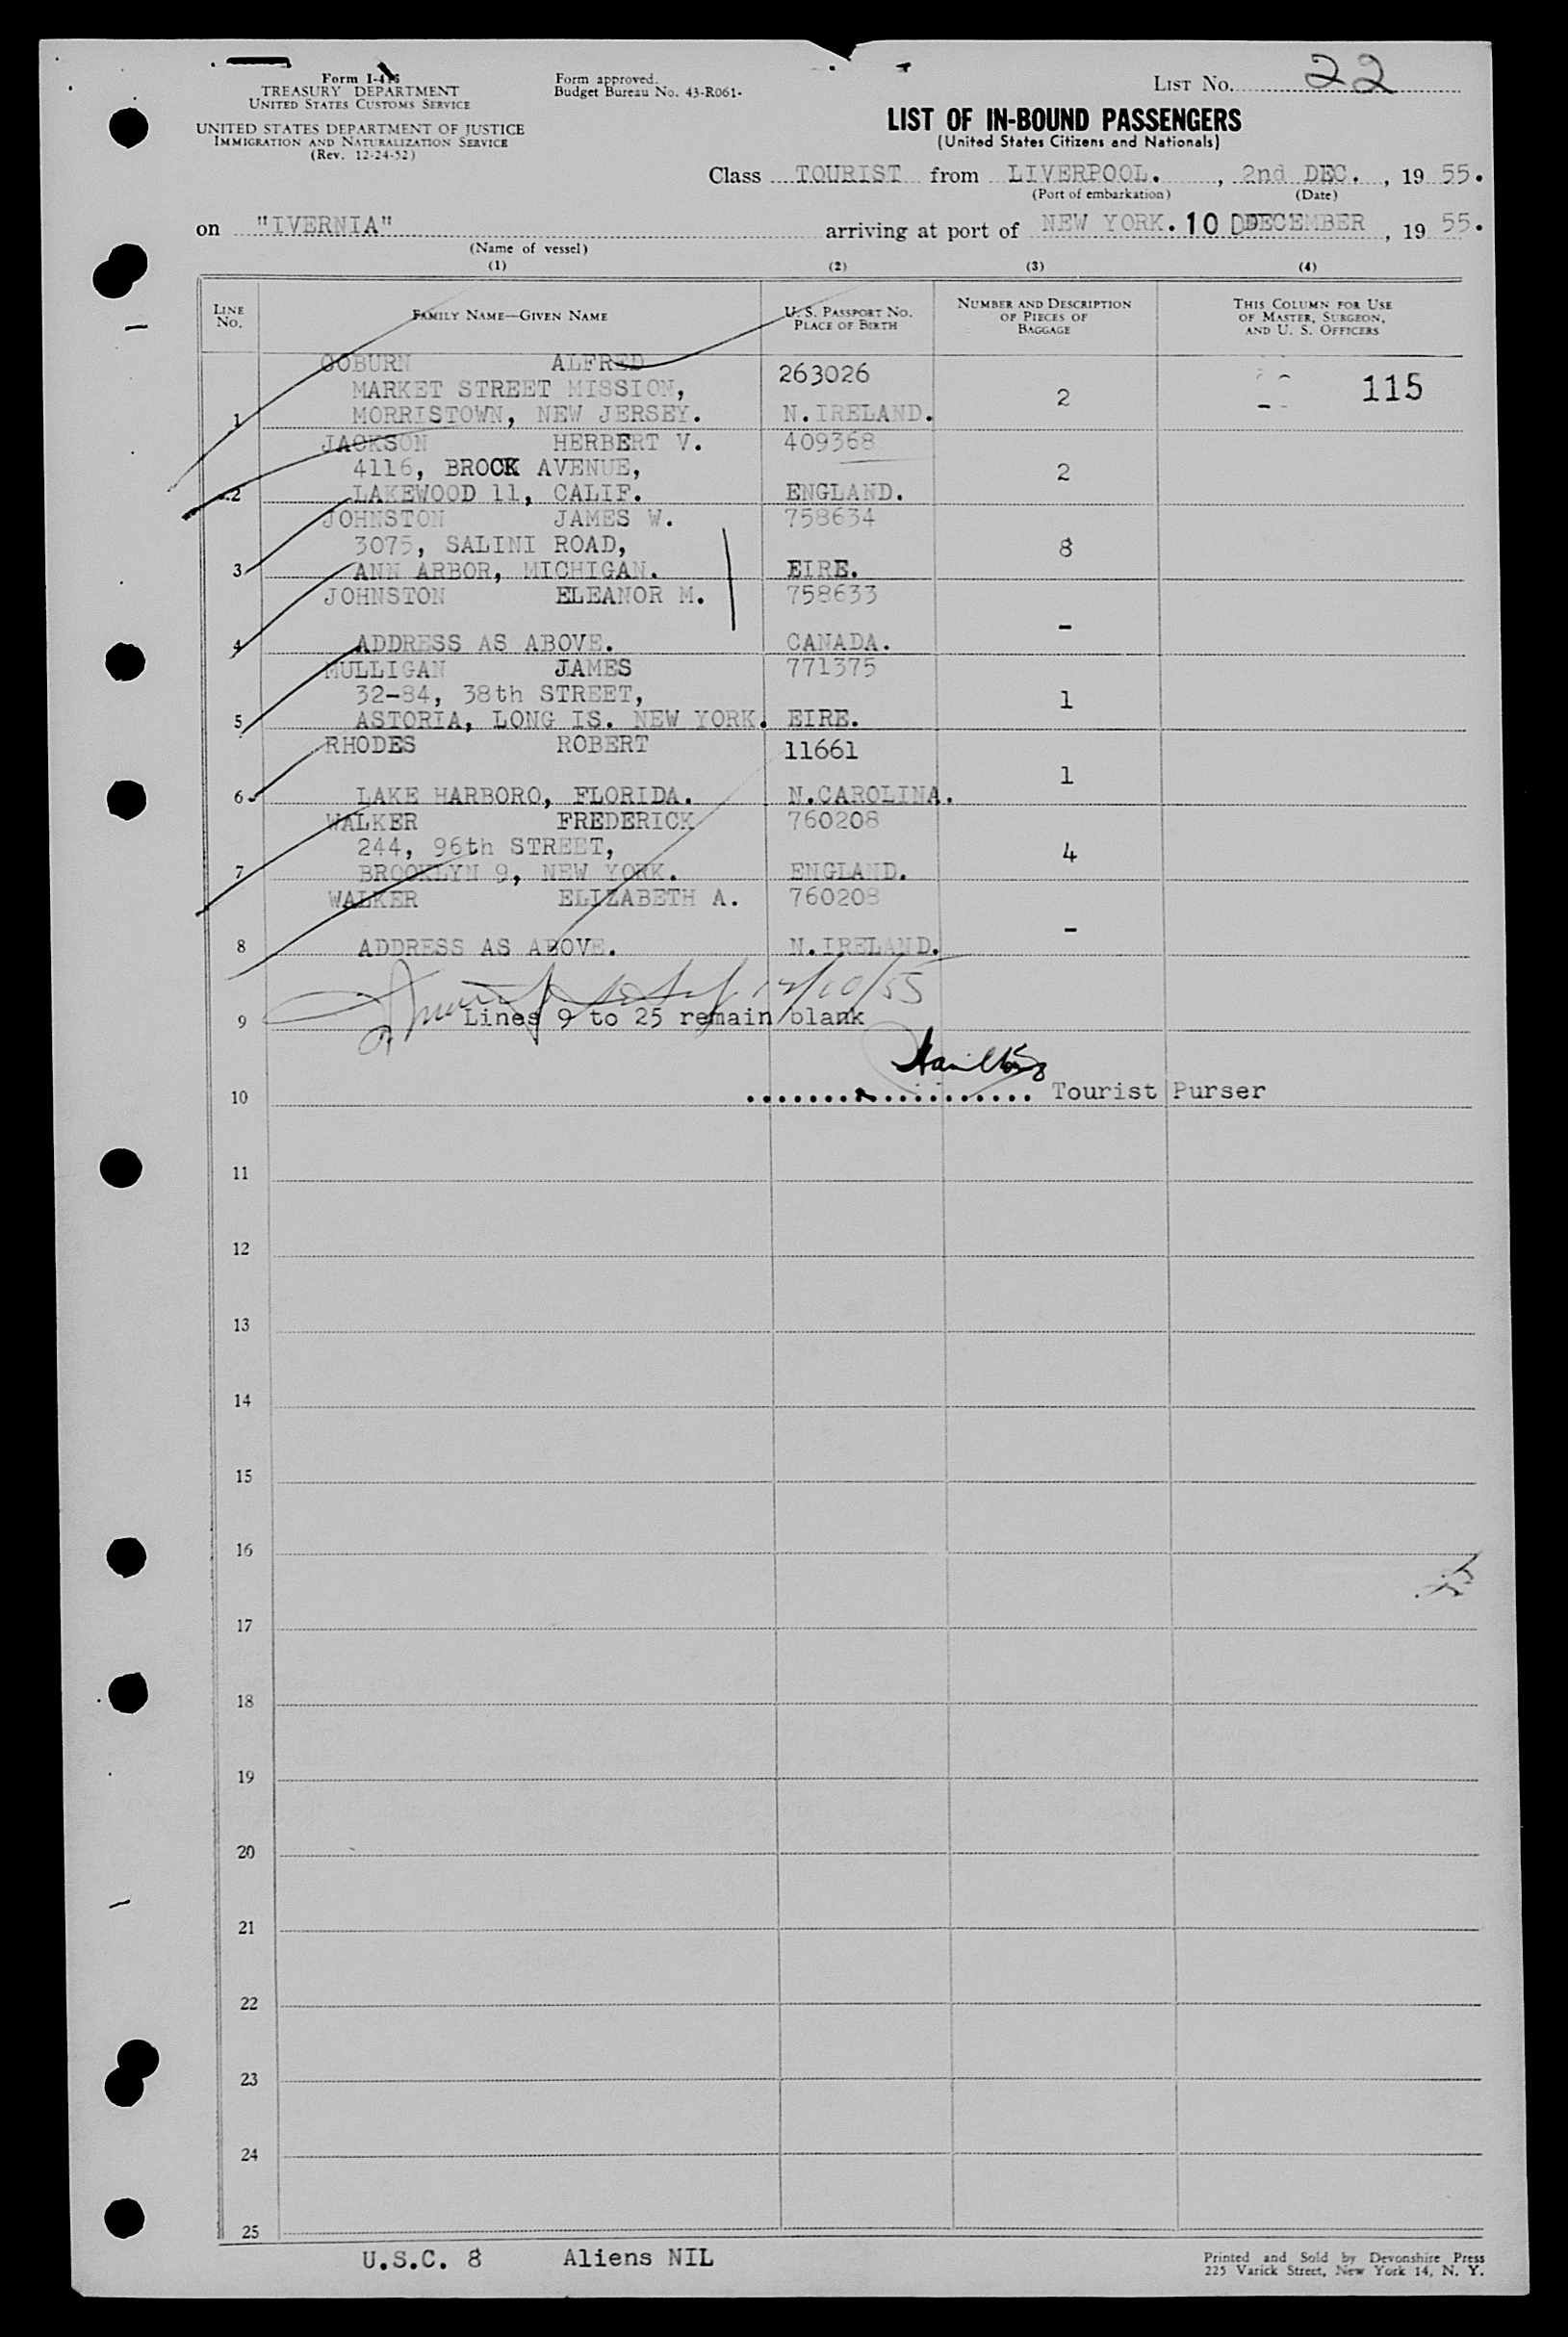 Form I-415
TREASURY DEPARTMENT
UNITED STATES CUSTOMS SERVICE
UNITED STATES DEPARTMENT OF JUSTICE
IMMIGRATION AND NATURALIZATION SERVICE
(Rev. 12-24-52)
Form approved.
Budget Bureau No. 43-R061-
LIST No. 22
LIST OF IN-BOUND PASSENGERS
(United States Citizens and Nationals)
Class TOURIST from LIVERPOOL. , 2nd DEC. , 19 55.
(Port of embarkation) (Date)
on "IVERNIA" arriving at port of NEW YORK. 10 DECEMBER , 19 55.
(Name of vessel)
(1) (2) (3) (4)
LINE No. FAMILY NAME—GIVEN NAME U. S. PASSPORT No. PLACE OF BIRTH NUMBER AND DESCRIPTION OF PIECES OF BAGGAGE THIS COLUMN FOR USE OF MASTER, SURGEON, AND U. S. OFFICERS
COBURN ALFRED 263026
MARKET STREET MISSION, 2 115
1 MORRISTOWN, NEW JERSEY. N.IRELAND.
JACKSON HERBERT V. 409368
4116, BROCK AVENUE, 2
2 LAKEWOOD 11, CALIF. ENGLAND.
JOHNSTON JAMES W. 758634
3075, SALINI ROAD, 8
3 ANN ARBOR, MICHIGAN. EIRE.
JOHNSTON ELEANOR M. 758633
-
4 ADDRESS AS ABOVE. CANADA.
MULLIGAN JAMES 771375
32-84, 38th STREET, 1
5 ASTORIA, LONG IS. NEW YORK. EIRE.
RHODES ROBERT 11661
1
6 LAKE HARBORO, FLORIDA. N.CAROLINA.
WALKER FREDERICK 760208
244, 96th STREET, 4
7 BROOKLYN 9, NEW YORK. ENGLAND.
WALKER ELIZABETH A. 760208
-
8 ADDRESS AS ABOVE. N.IRELAND.
12/10/55
9 Lines 9 to 25 remain blank
10 Tourist Purser
11
12
13
14
15
16
17
18
19
20
21
22
23
24
25
U.S.C. 8 Aliens NIL
Printed and Sold by Devonshire Press
225 Varick Street, New York 14, N. Y.